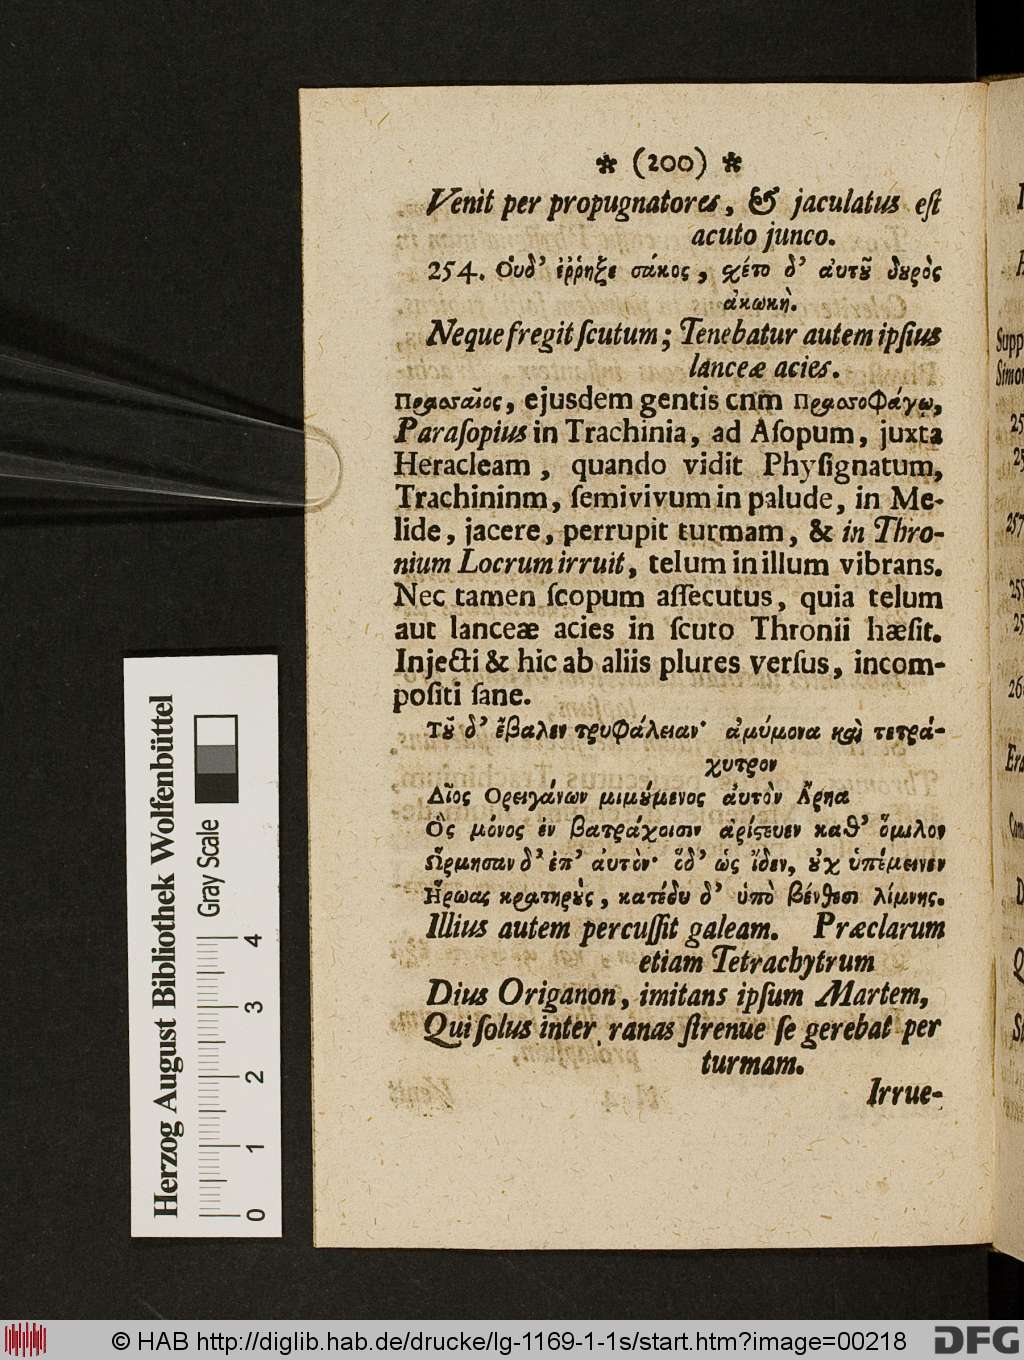 * (200) *
Venit per propugnatores, & jaculatus est
acuto junco.
254. Οὐδ' ἐῤῥηξε σάκος, χέτο δ' ἀυτοῦ δουρὸς
ἀκωκὴ.
Neque fregit ſcutum; Tenebatur autem ipſius
lanceæ acies.
Πρασσαῖος, ejusdem gentis cnm ΠρασσοΦάγω,
Paraſopius in Trachinia, ad Aſopum, juxta
Heracleam, quando vidit Phyſignatum,
Trachininm, ſemivivum in palude, in Me-
lide, jacere, perrupit turmam, & in Thro-
nium Locrum irruit, telum in illum vibrans.
Nec tamen ſcopum aſſecutus, quia telum
aut lanceæ acies in ſcuto Thronii hæſit.
Injecti & hic ab aliis plures verſus, incom-
poſiti ſane.
Τοῦ δ' ἔβαλεν τρυΦάλειαν· ἀμύμονα καὶ τετρά-
χυτρον
Δῖος Ορειγάνων μιμούμενος ἀυτὸν Ἄρηα
Ὃς μόνος ἐν βατράχοισιν ἀρίστευεν καθ' ὅμιλον
Ὥρμησαν δ' ἐπ' ἀυτὸν· ὅδ' ὡς ἴδεν, οὐχ ὑπέμεινεν
Ἥρωας κρατηροὺς, κατέδυ δ' ὑπὸ βένθεσι λίμνης.
Illius autem percuſſit galeam. Præclarum
etiam Tetrachytrum
Dius Origanon, imitans ipſum Martem,
Qui ſolus inter ranas ſtrenue ſe gerebat per
turmam.
Irrue-
Herzog August Bibliothek Wolfenbüttel
Gray Scale
0 1 2 3 4
Supp
Simon
257
© HAB http://diglib.hab.de/drucke/lg-1169-1-1s/start.htm?image=00218
DFG